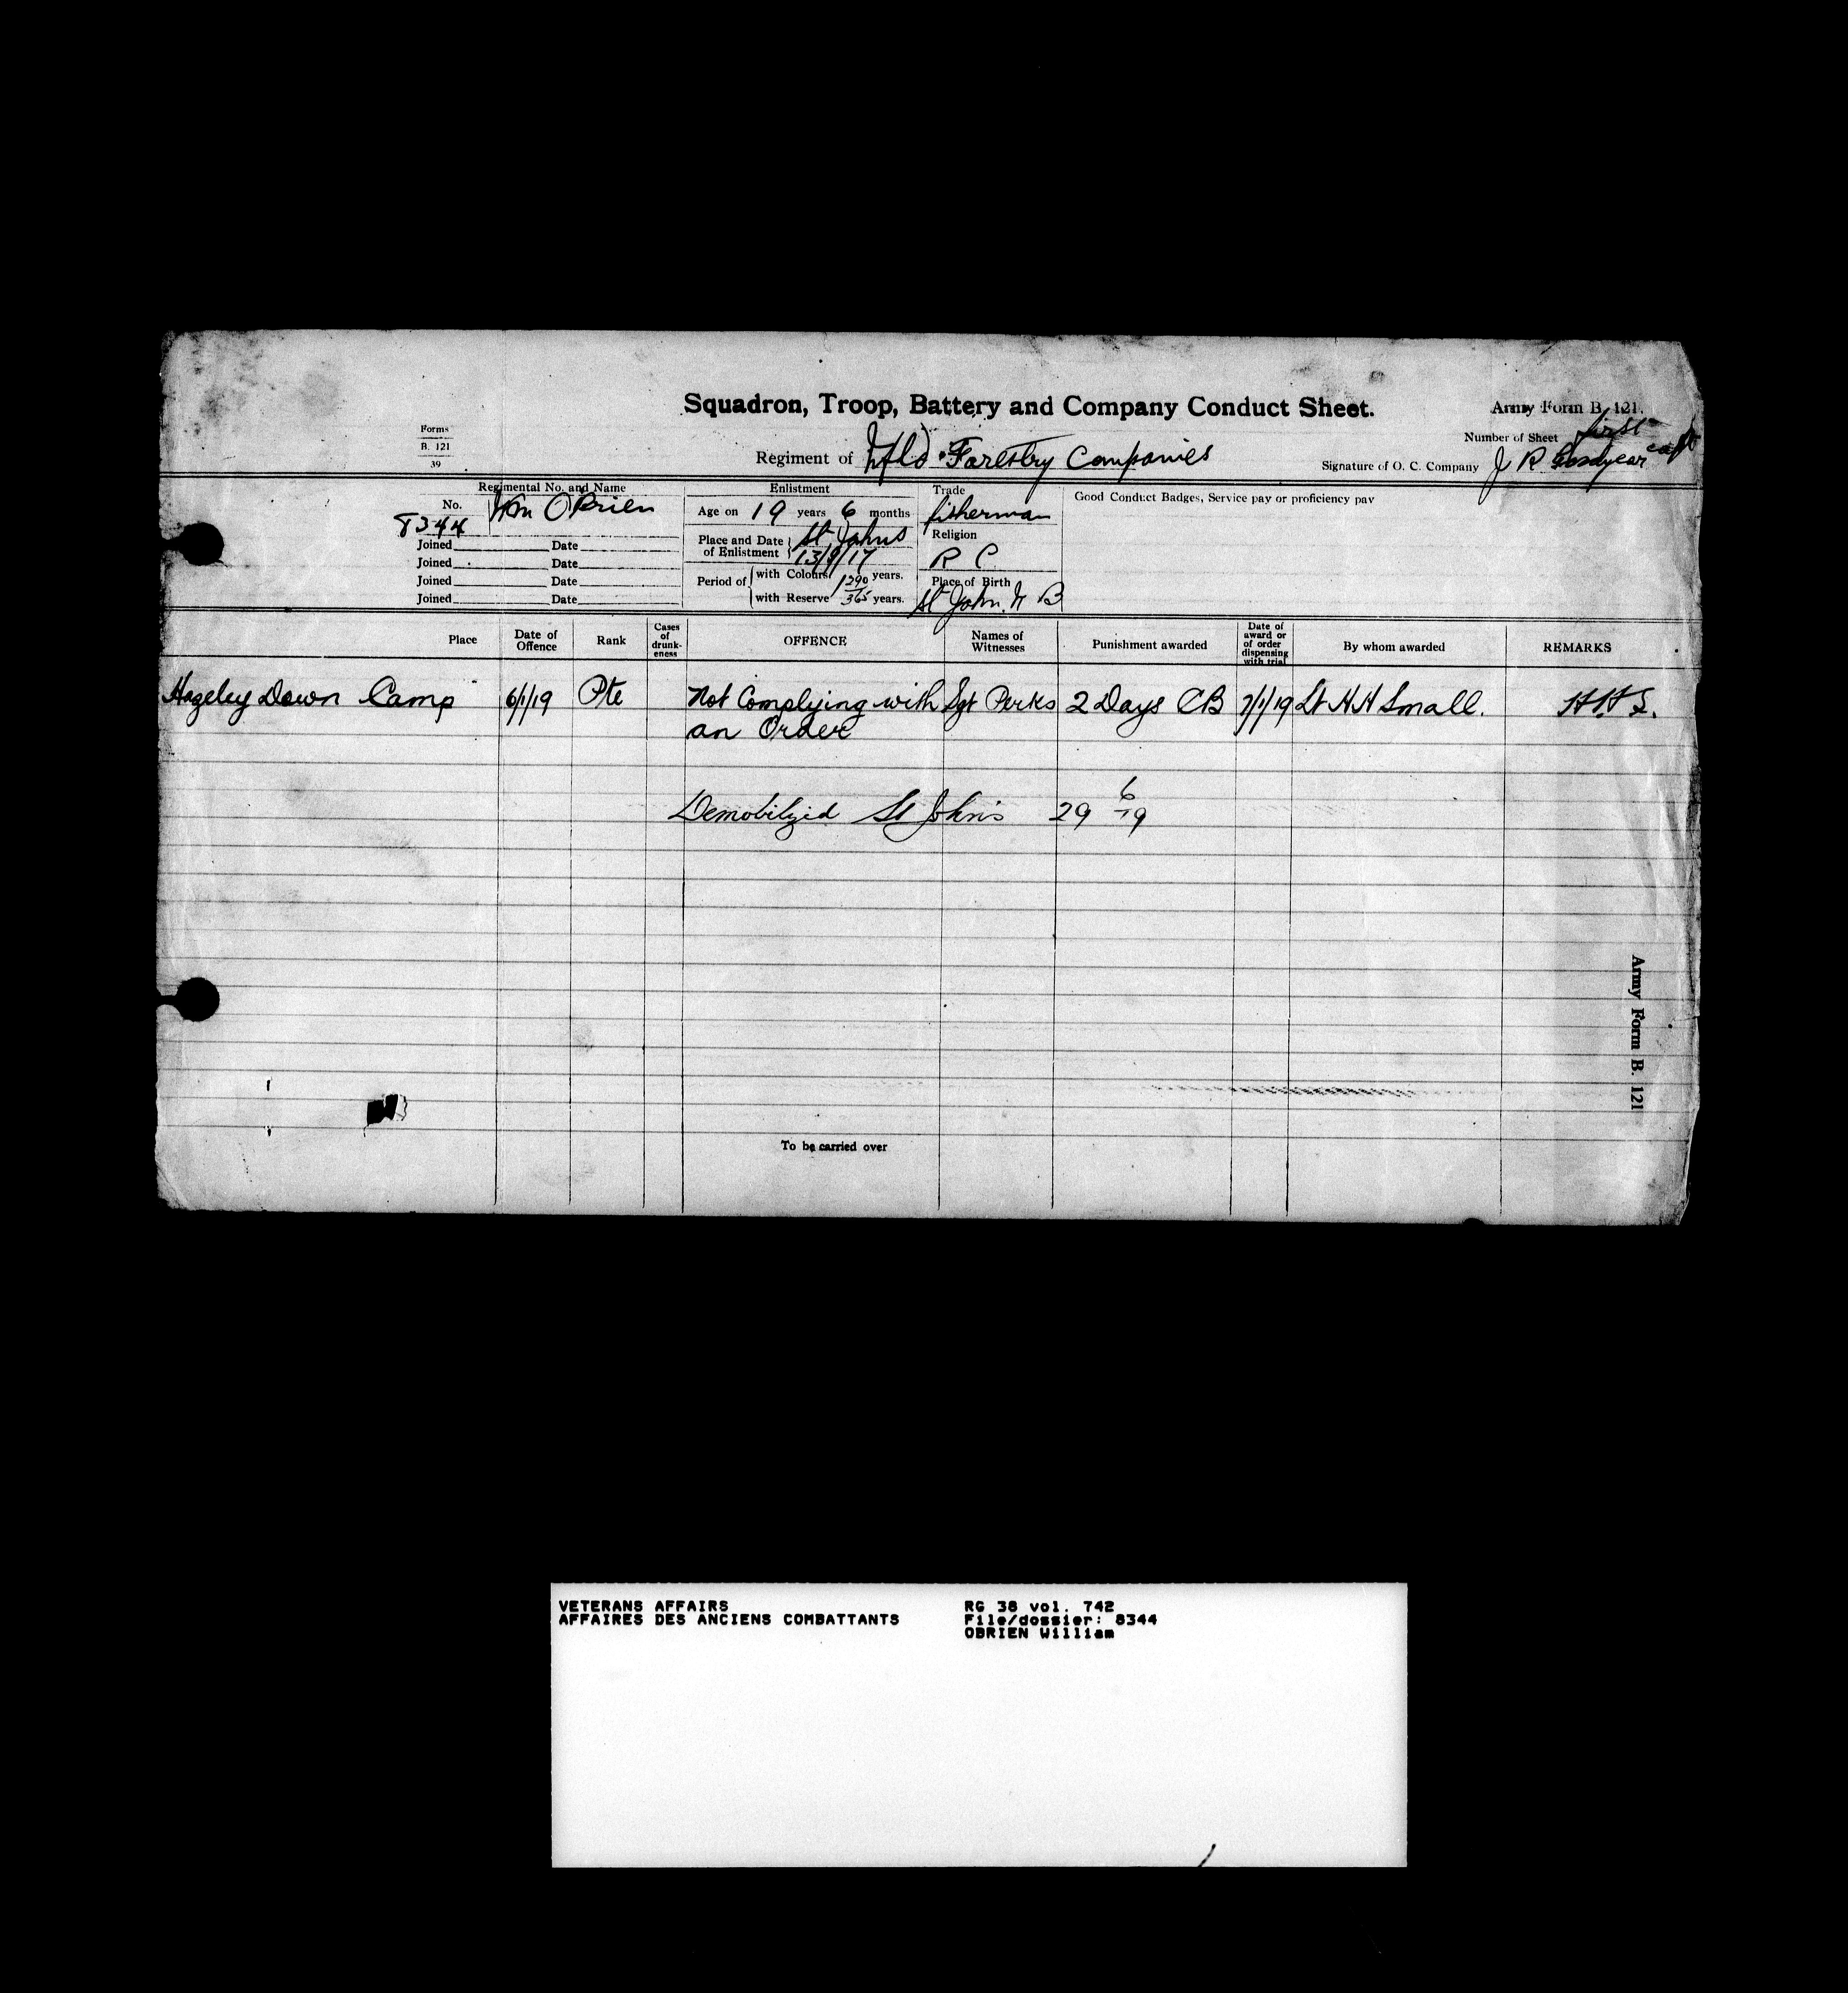 Squadron, Troop, Battery and Company Conduct Sheet.
Army Form B. 121.
Forms
B. 121
39
Number of Sheet first
Regiment of Nfld Forestry Companies
Signature of O. C. Company J R Goodyear capt
Regimental No. and Name
No. 8344 Wm O'Brien
Joined Date
Joined Date
Joined Date
Joined Date
Enlistment
Age on 19 years 6 months
Place and Date of Enlistment St Johns
13/9/17
Period of with Colours years.
with Reserve 365 years.
Trade
fisherman
Religion
R C
Place of Birth
St John. N B
Good Conduct Badges, Service pay or proficiency pay
Place Date of Offence Rank Cases of drunk-eness OFFENCE Names of Witnesses Punishment awarded Date of award or of order dispensing with trial By whom awarded REMARKS
Hazeley Down Camp 6/1/19 Pte Not Complying with Sgt Perks 2 Days CB 7/1/19 Lt H H Small. H.H.S.
an Order
Demobilized St John's 29 6/19
To be carried over
Army Form B. 121
VETERANS AFFAIRS RG 38 vol. 742
AFFAIRES DES ANCIENS COMBATTANTS File/dossier: 8344
OBRIEN William